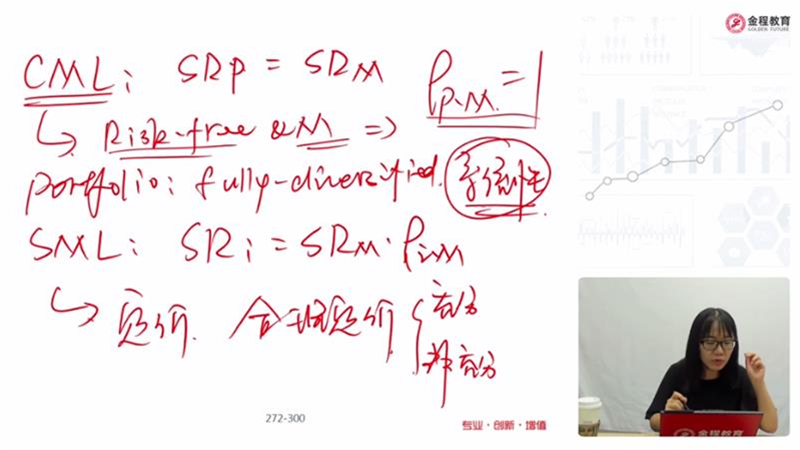 金程教育
GOLDEN FUTURE
CML: SRp = SRM ρP,M = 1
↳ Risk-free & M ⇒
portfolio: fully-diversified. 系统性
SML: SRi = SRM · ρi,M
↳ 定价. 合理定价 { 充分
非充分
272-300
专业·创新·增值
金程教育